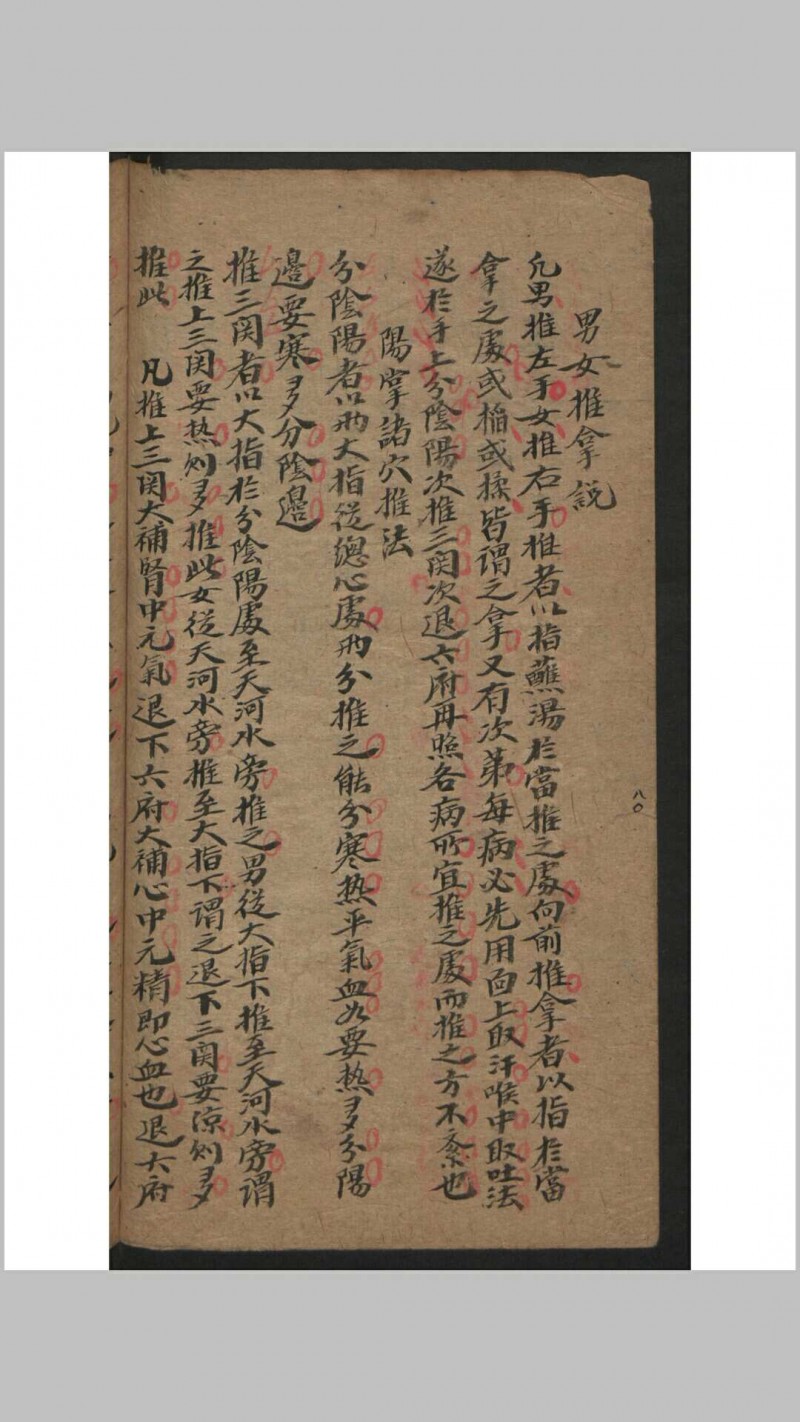 男女推拿說
凢男推左手女推右手推者以指蘸湯於當推之處向前推拿者以指於當
拿之處或掐或揉皆謂之拿又有次第每病必先用面上取汗喉中取吐法
遂於手上分陰陽次推三関次退六府再照各病所宜推之處而推之方不紊也
陽掌諸穴推法
分陰陽者以兩大指從總心處兩分推之能分寒热平氣血如要热多分陽
邊要寒多分陰邊
推三関者以大指於分陰陽處至天河水旁推之男從大指下推至天河水旁謂
之推上三関要热则多推此女從天河水旁推至大指下謂之退下三関要凉则多
推此　凡推上三関大補腎中元氣退下六府大補心中元精即心血也退六府
八〇